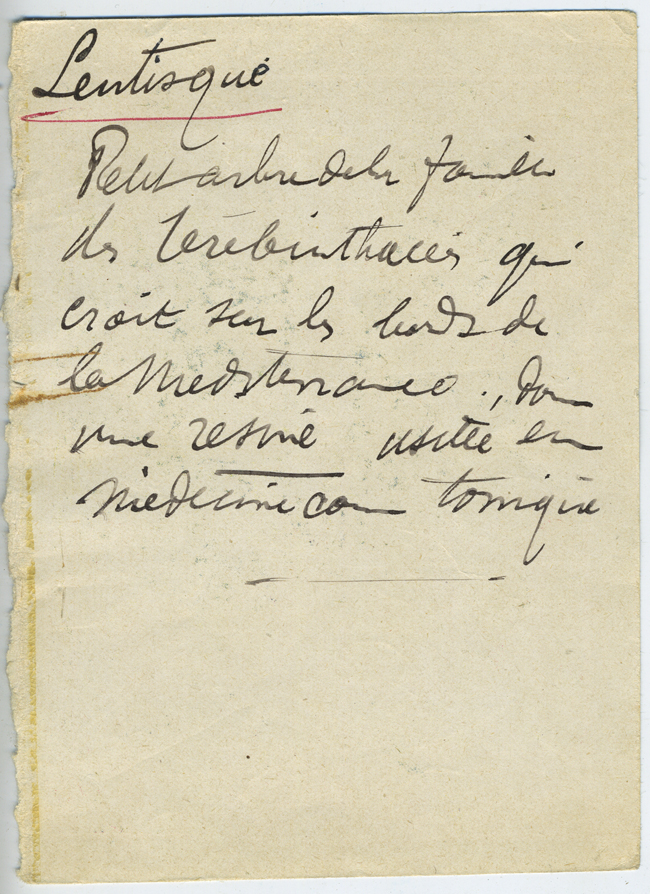 Lentisque
Petit arbre de la famille
des Térébinthacées qui
croit sur les bords de
la Méditerranée., donne
une résine usitée en
médecine comme tonique